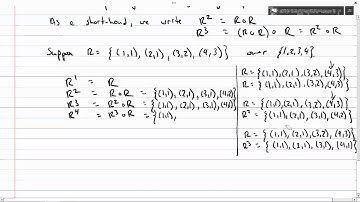 As a short-hand, we write R² = R∘R
R³ = (R∘R)∘R = R²∘R
Suppose R = { (1,1), (2,1), (3,2), (4,3) } over {1,2,3,4}
R¹ = R
R² = R∘R = {(1,1), (2,1), (3,1), (4,2)}
R³ = R²∘R = {(1,1), (2,1), (3,1), (4,1)}
R⁴ = R³∘R = {(1,1),
R = { (1,1), (2,1), (3,2), (4,3) }
R = { (1,1), (2,1), (3,2), (4,3) }
R = { (1,1), (2,1), (3,2), (4,3) }
R² = { (1,1), (2,1), (3,1), (4,2) }
R = { (1,1), (2,1), (3,2), (4,3) }
R³ = { (1,1), (2,1), (3,1), (4,1) }